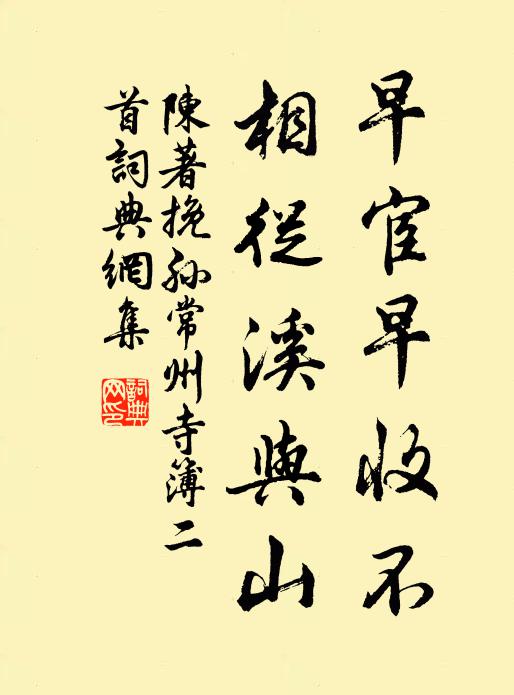 早宦早收不
相從溪與山
陳著挽孫常州寺簿二
首詞典網集
詞典
网印